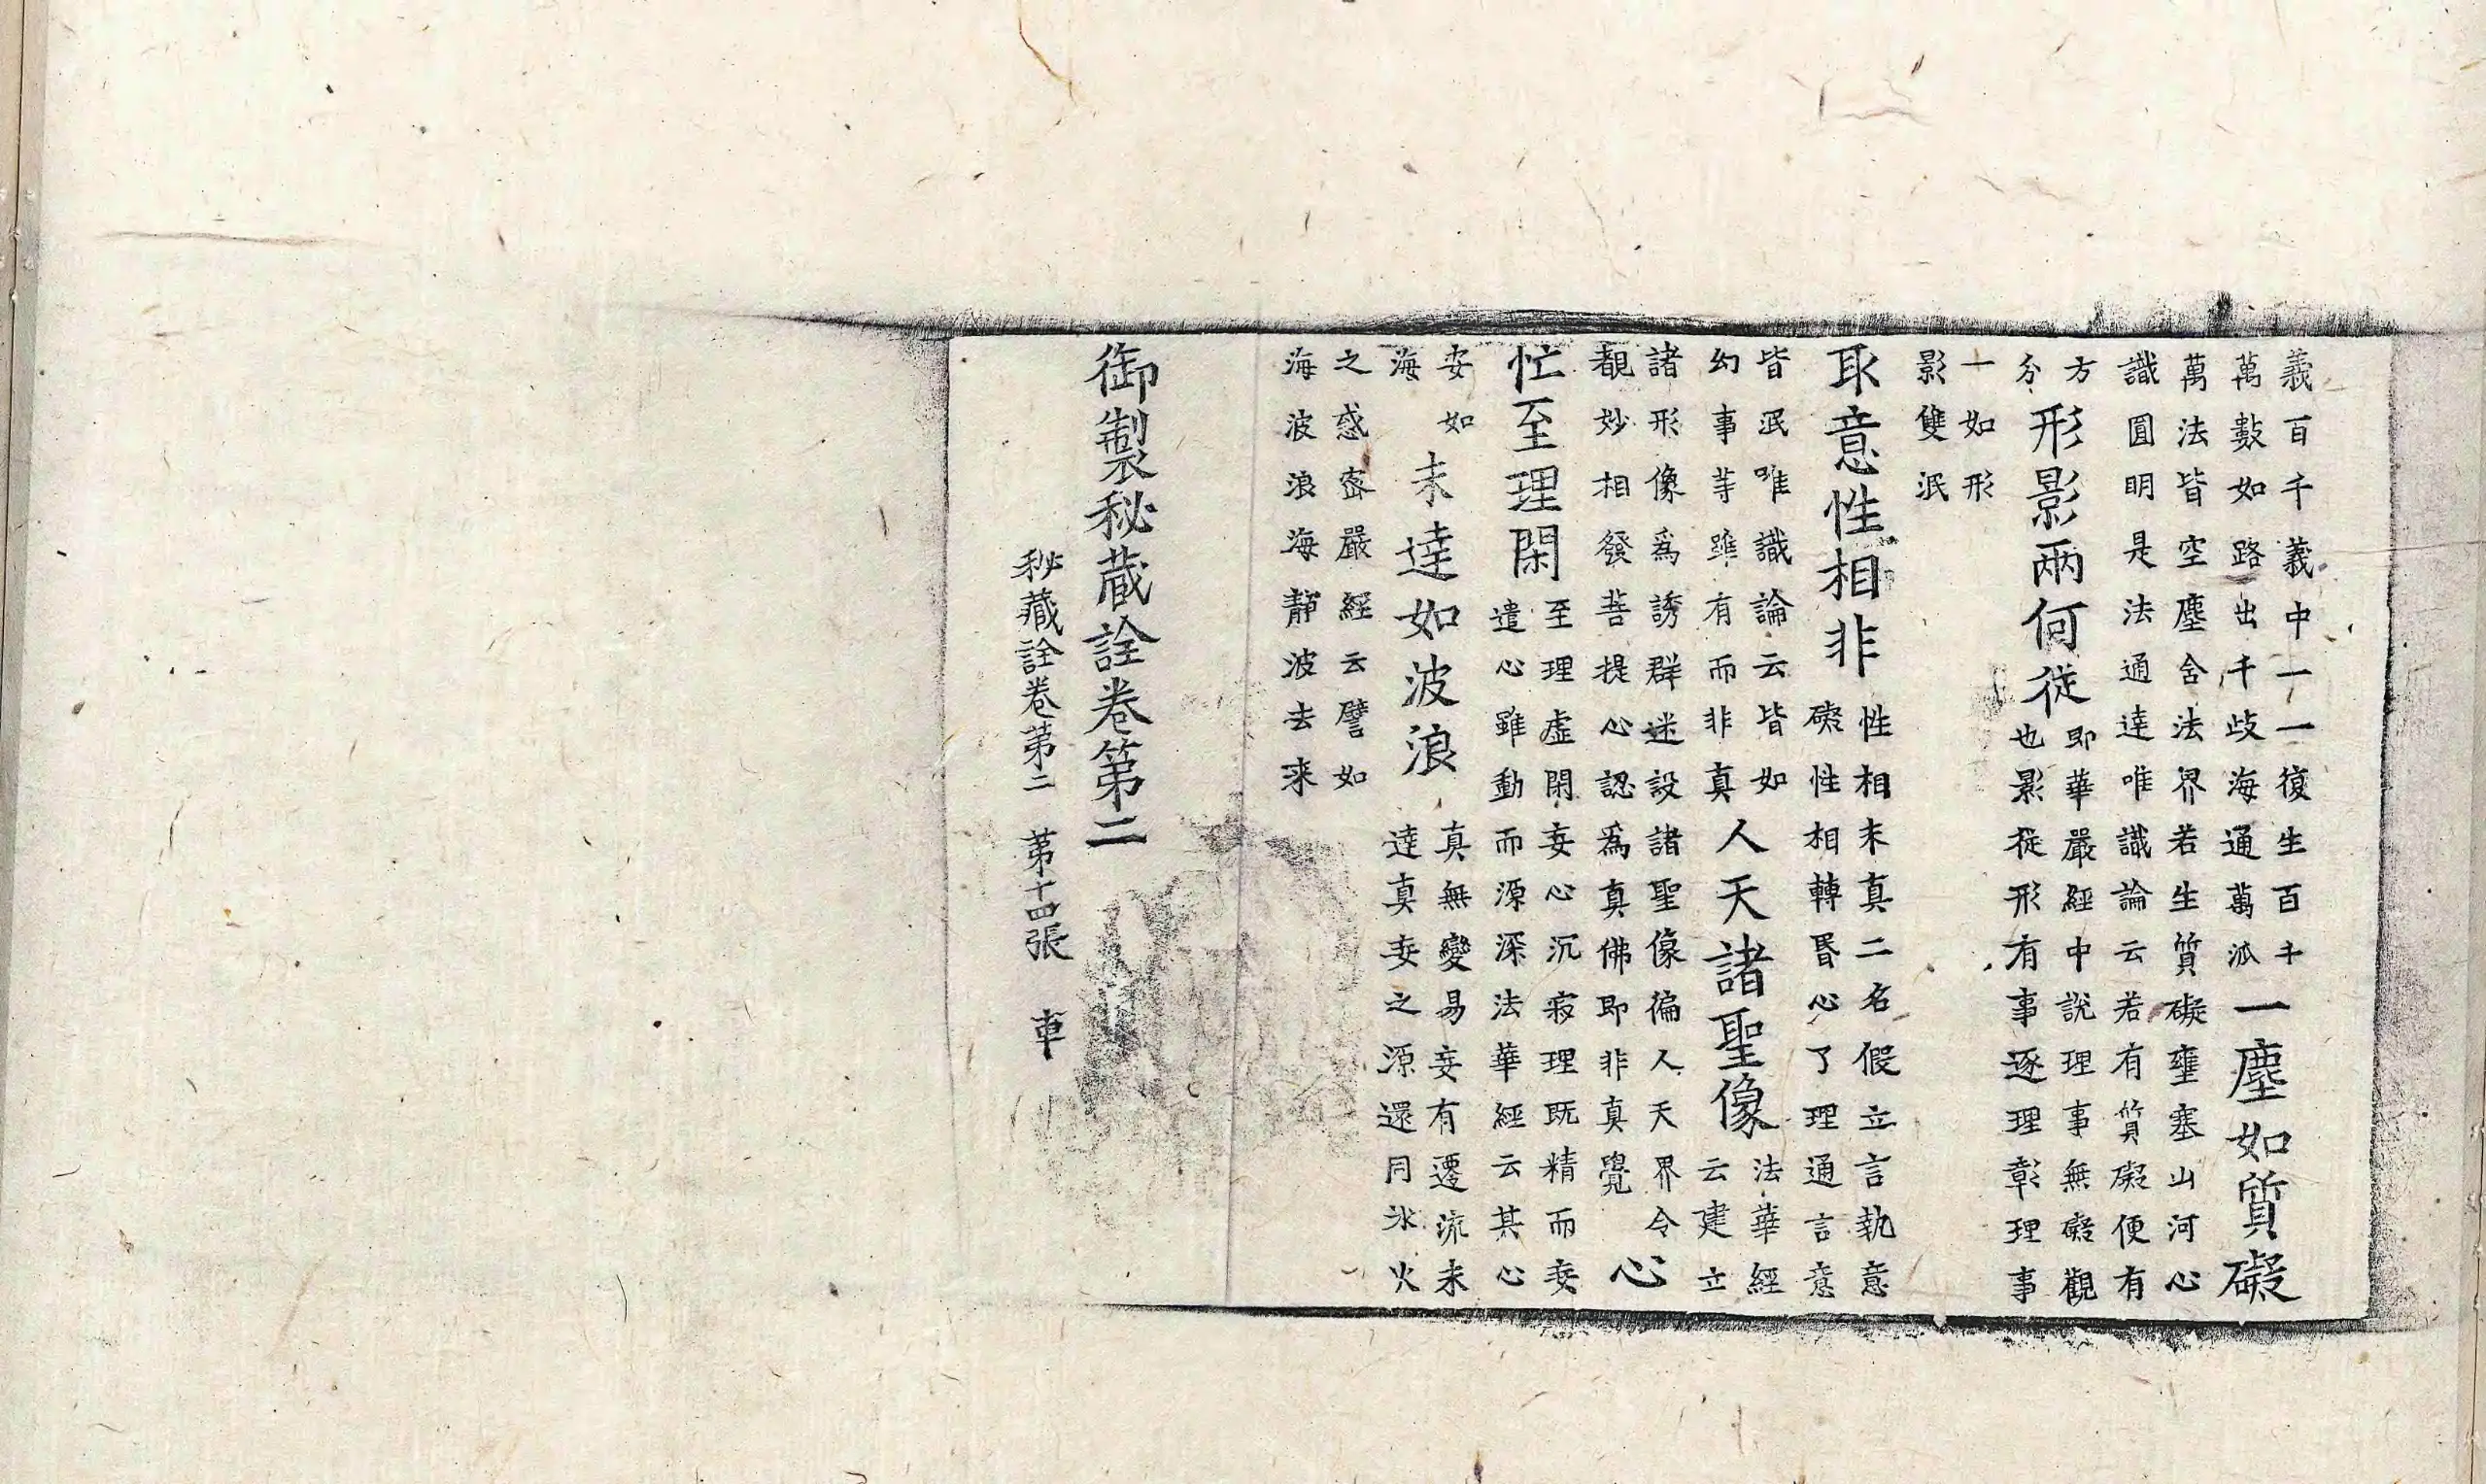 義百千義中一一一復生百千
萬數如路出千歧海通萬派
一塵如質礙
萬法皆空塵舍法界若生質礙壅塞山河心
識圓明是法通達唯識論云若有質礙便有
方
分
形影兩何從
即華嚴經中說理事無礙觀
也影從形有事逐理彰理事
一如形
影雙泯
取意性相非
性相未真二名假立言執意
礙性相轉昬心了理通言意
皆泯唯識論云皆如
幻事等雖有而非真
人天諸聖像
法華經
云建立
諸形像爲誘群迷設諸聖像徧人天界令
覩妙相發菩提心認爲真佛即非真覺
心
忙至理閑
至理虛閑妄心沉寂理既精而妄
遣心雖動而源深法華經云其心
安如
海
未達如波浪
真無變易妄有遷流未
達真妄之源還同氷火
之惑密嚴經云譬如
海波浪海靜波去来
御製秘蔵詮卷第二
秘藏詮卷第二 第十四張 車